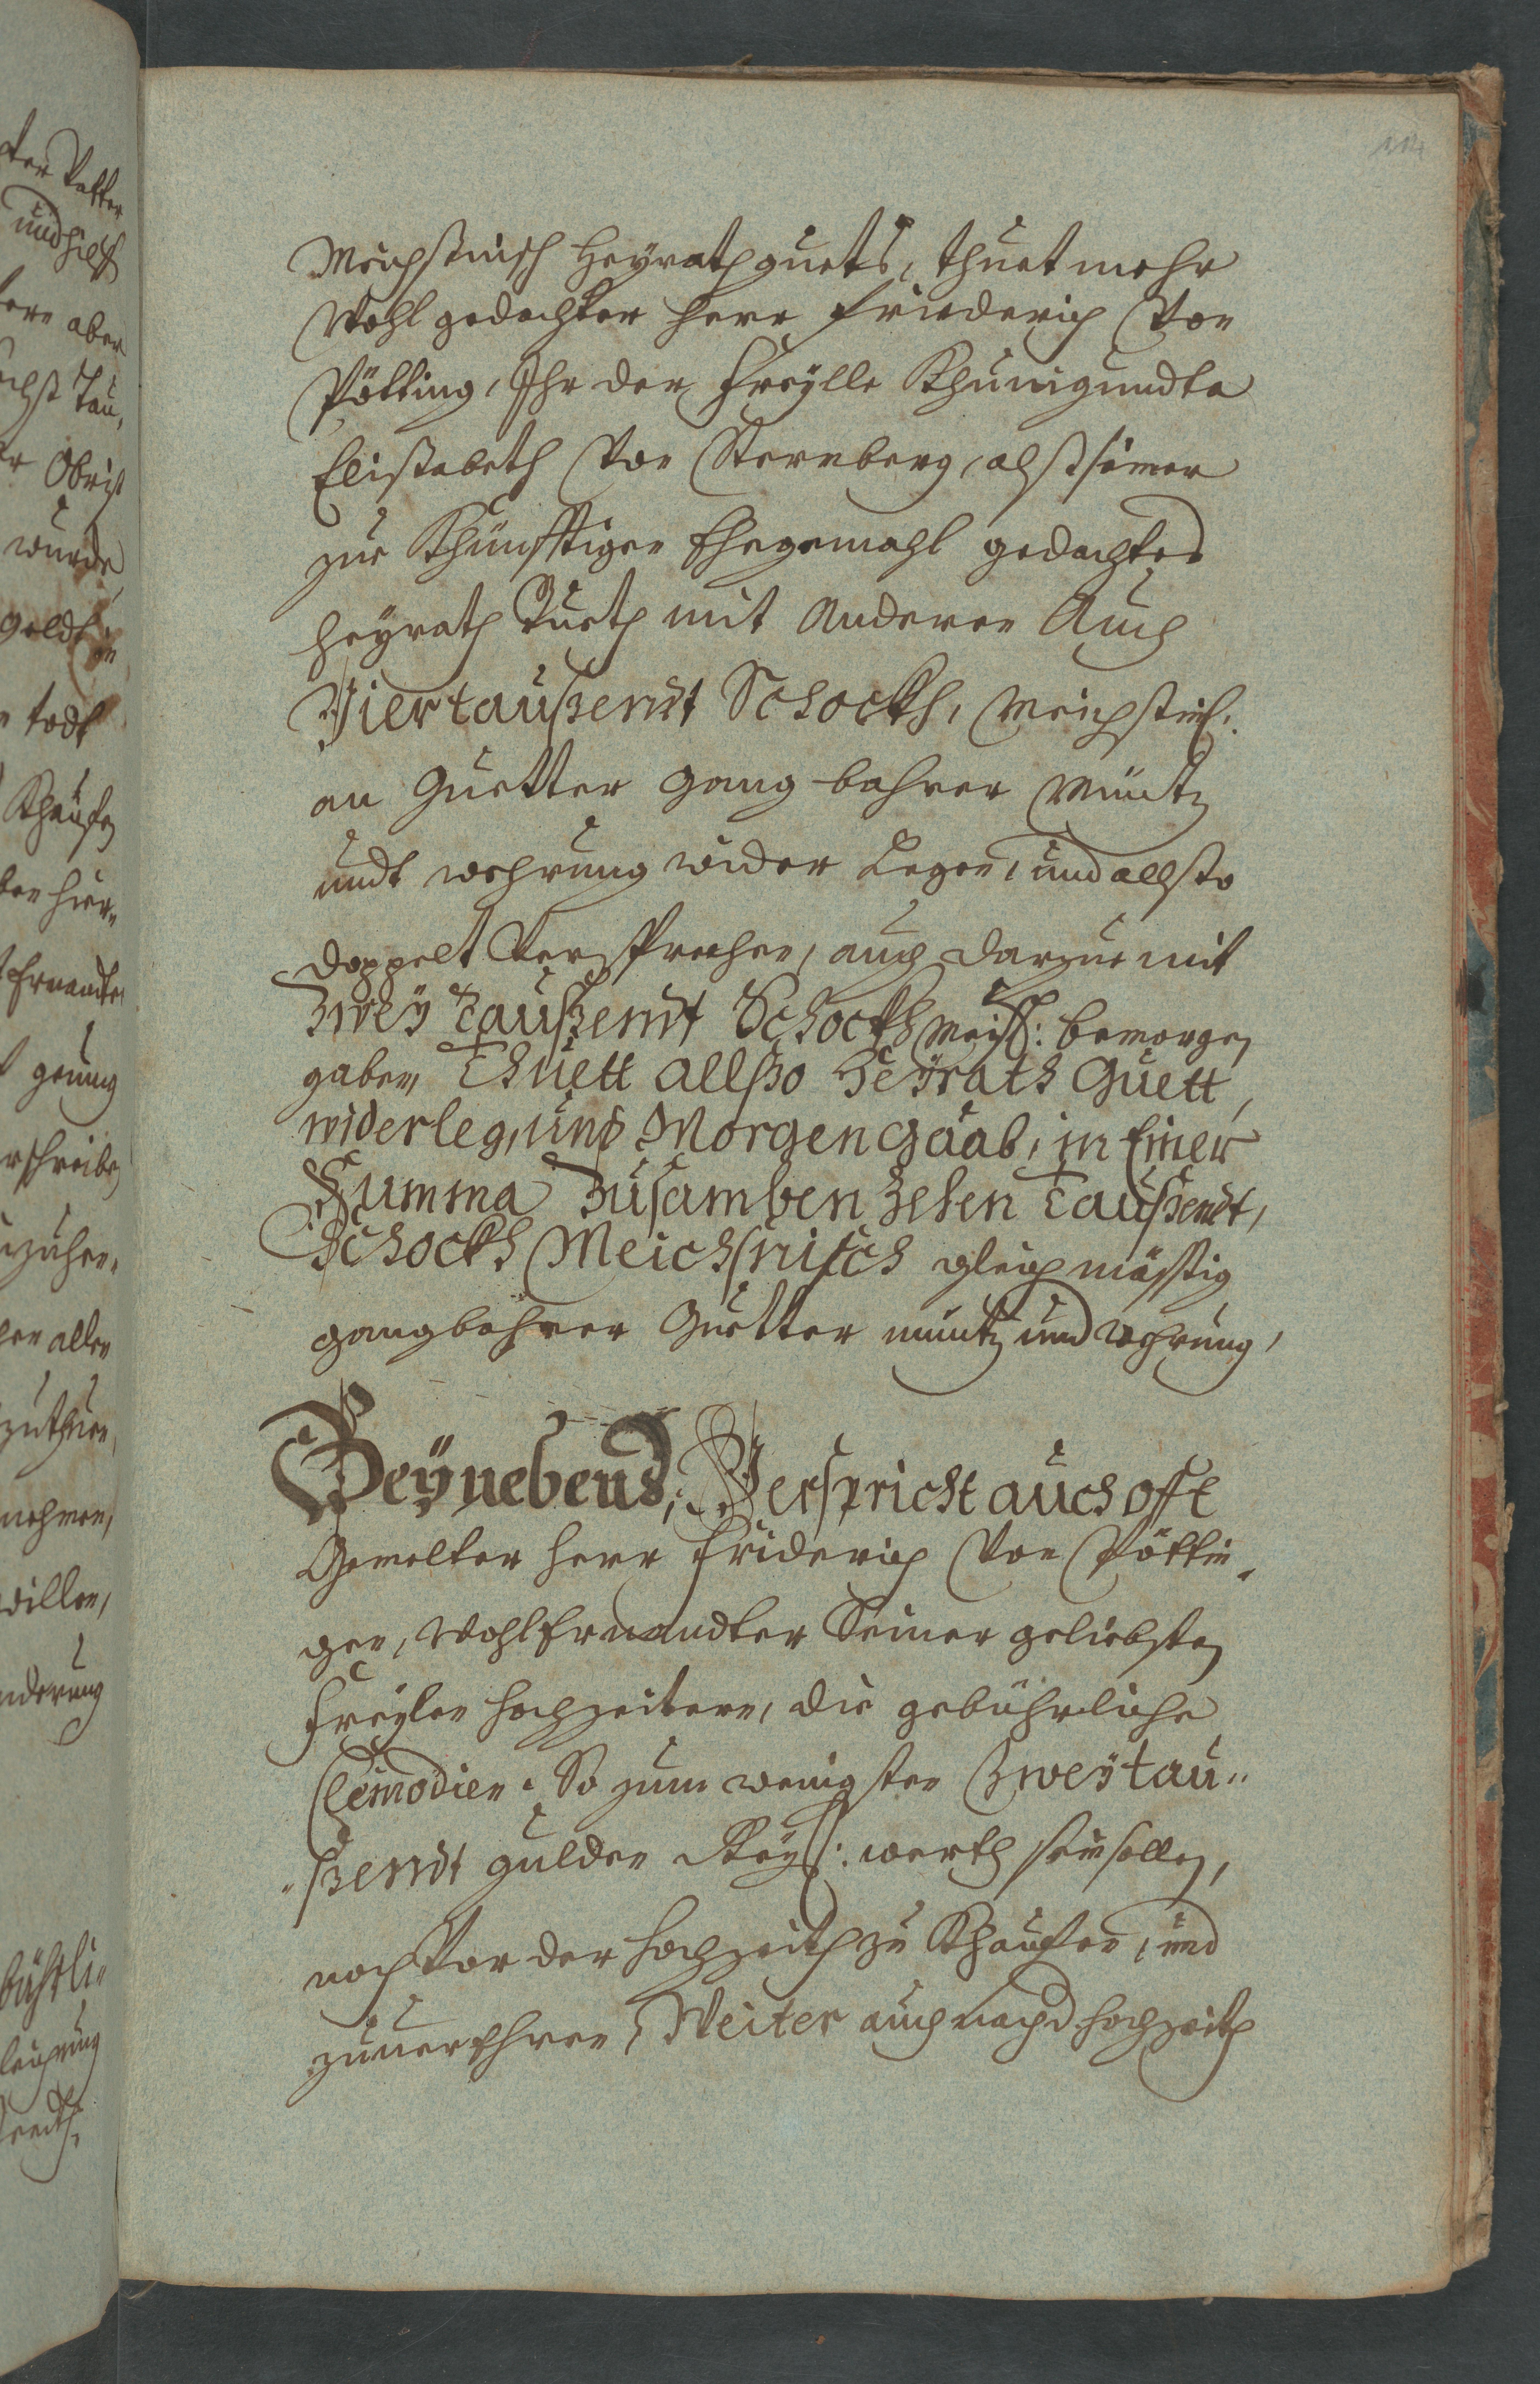 114
Meichßnisch Heyrathguets, thuet mehr
Wohl gedachter Herr Friederich Von
Pötting, Ihr der Freylle Khunigundta
Elisabeth Von Sternberg, alß seiner
zur Khünfftigen Ehegemahl gedachtes
Heyrath Guett mit Anderen Auch
Viertaußendt Schockh, Meichßnisch:
an Guetter gang bahrer Müntz
undt wehrung wider Legen, und allßo
doppelt Versprochen, auch darzue mit
Zwey Taußendt Schockh Meiß: bemorgen
gaben, Thuett allßo Heyrath Guett,
widerleg, und Morgengaab, in Einer
Summa Zusamben Zehen Taußendt,
Schockh Meichsnisch gleichmässig
gangbahrer Guetter müntz und wehrung,
Beynebens, Verspricht auch offt
Gemelter Herr Friderich Von Pöttin-
gen, Wohl Ernandter Seiner geliebsten
Freylen Hochzeiterin, die gebührliche
Cleinodien. So zum wenigsten Zweytau-
ßendt gulden Reiß: werth sein sollen,
noch Vor der Hochzeith zu Khauffen, und
zuuerehren, Weiter auch nach d Hochzeith
ter Vatter
und
ber aber
Tau,
Obrist
wurde
geldt
todt
Khauffen
ben hier
Ernandte
genueg
rschreiben
aller
zuthuen,
nehmen,
willen,
nderung